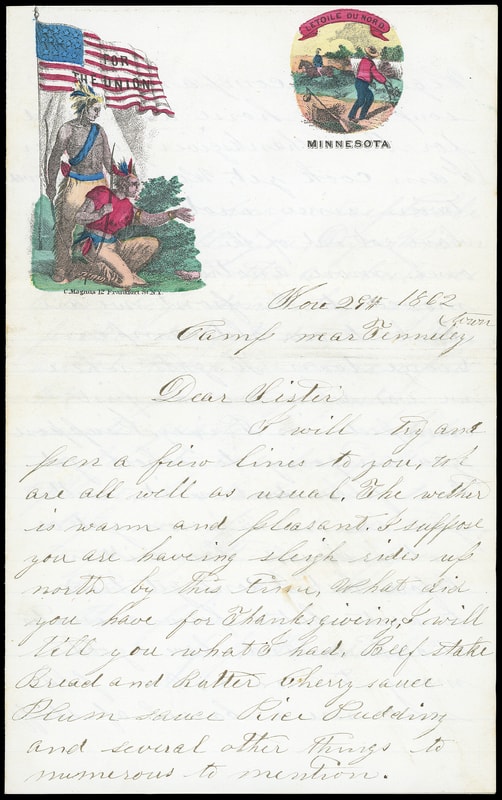 FOR
THE UNION
L'ETOILE DU NORD
MINNESOTA
C. Magnus 12 Frankfort St. N.Y.
Nov 29th 1862
Camp near Tenneley
Town
Dear Sister
I will try and
pen a few lines to you, we
are all well as usual. The wether
is warm and pleasant. I suppose
you are haveing sleigh rides up
north by this time, What did
you have for Thanksgiveing, I will
tell you what I had. Beef stake
Bread and Butter Cherry sauce
Plum sauce Rice Pudding
and several other things to
numerous to mention.